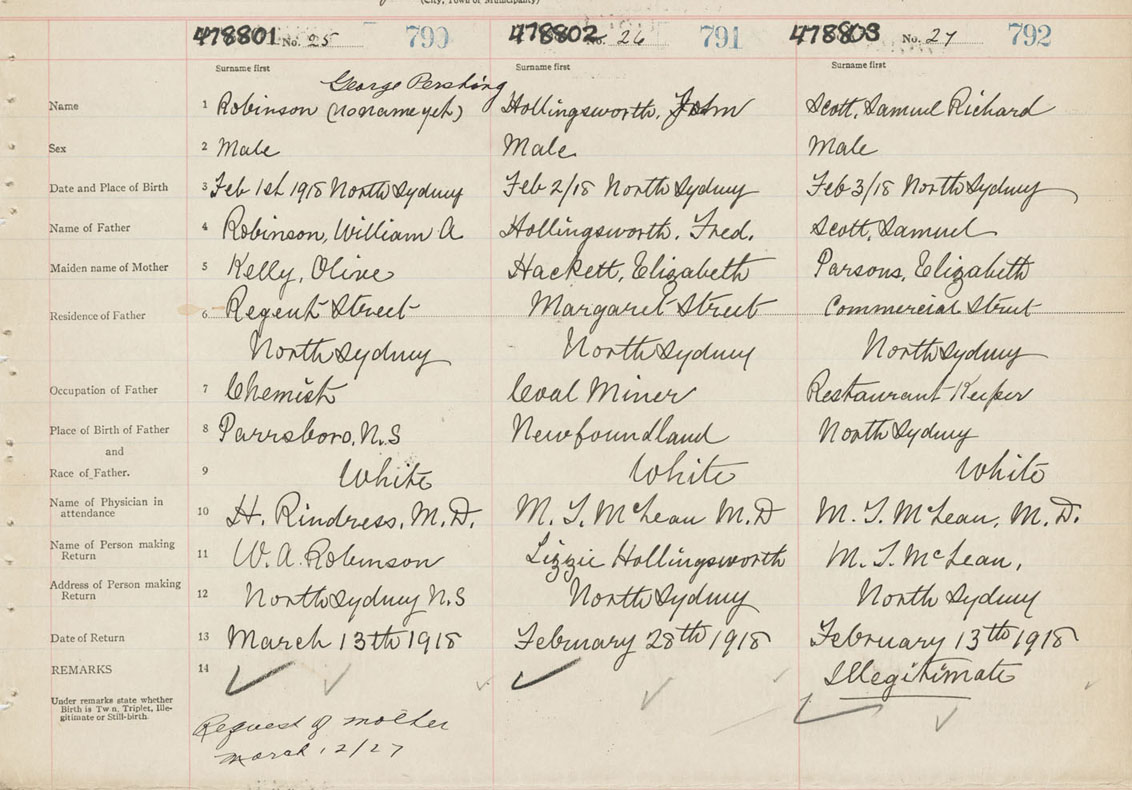 (City, Town or Municipality)
478801 No. 25 790 478802 No. 26 791 478803 No. 27 792
Surname first Surname first Surname first
George Pershing
Name 1 Robinson (no name yet) Hollingsworth, John Scott, Samuel Richard
Sex 2 Male Male Male
Date and Place of Birth 3 Feb 1st 1918 North Sydney Feb 2/18 North Sydney Feb 3/18 North Sydney
Name of Father 4 Robinson, William A Hollingsworth, Fred. Scott, Samuel
Maiden name of Mother 5 Kelly, Olive Hackett, Elizabeth Parsons, Elizabeth
Residence of Father 6 Regent Street Margaret Street Commercial Street
North Sydney North Sydney North Sydney
Occupation of Father 7 Chemist Coal Miner Restaurant Keeper
Place of Birth of Father 8 Parrsboro, N.S Newfoundland North Sydney
and
Race of Father. 9 White White White
Name of Physician in
attendance 10 H. Rindress, M.D. M. T. McLean M.D M. T. McLean, M.D.
Name of Person making
Return 11 W. A. Robinson Lizzie Hollingsworth M. T. McLean,
Address of Person making
Return 12 North Sydney N.S North Sydney North Sydney
Date of Return 13 March 13th 1918 February 28th 1918 February 13th 1918
REMARKS 14 Illegitimate
Under remarks state whether
Birth is Tw n, Triplet, Ille-
gitimate or Still-birth.
Request of mother
March 12/27